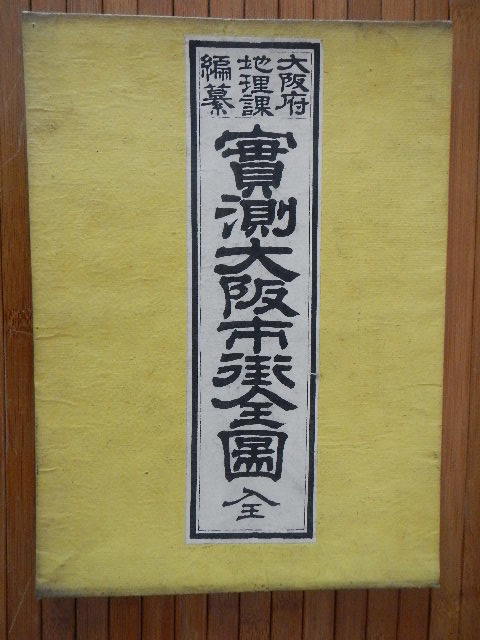 大阪府
地理課
編纂
實測大阪市街全圖
全